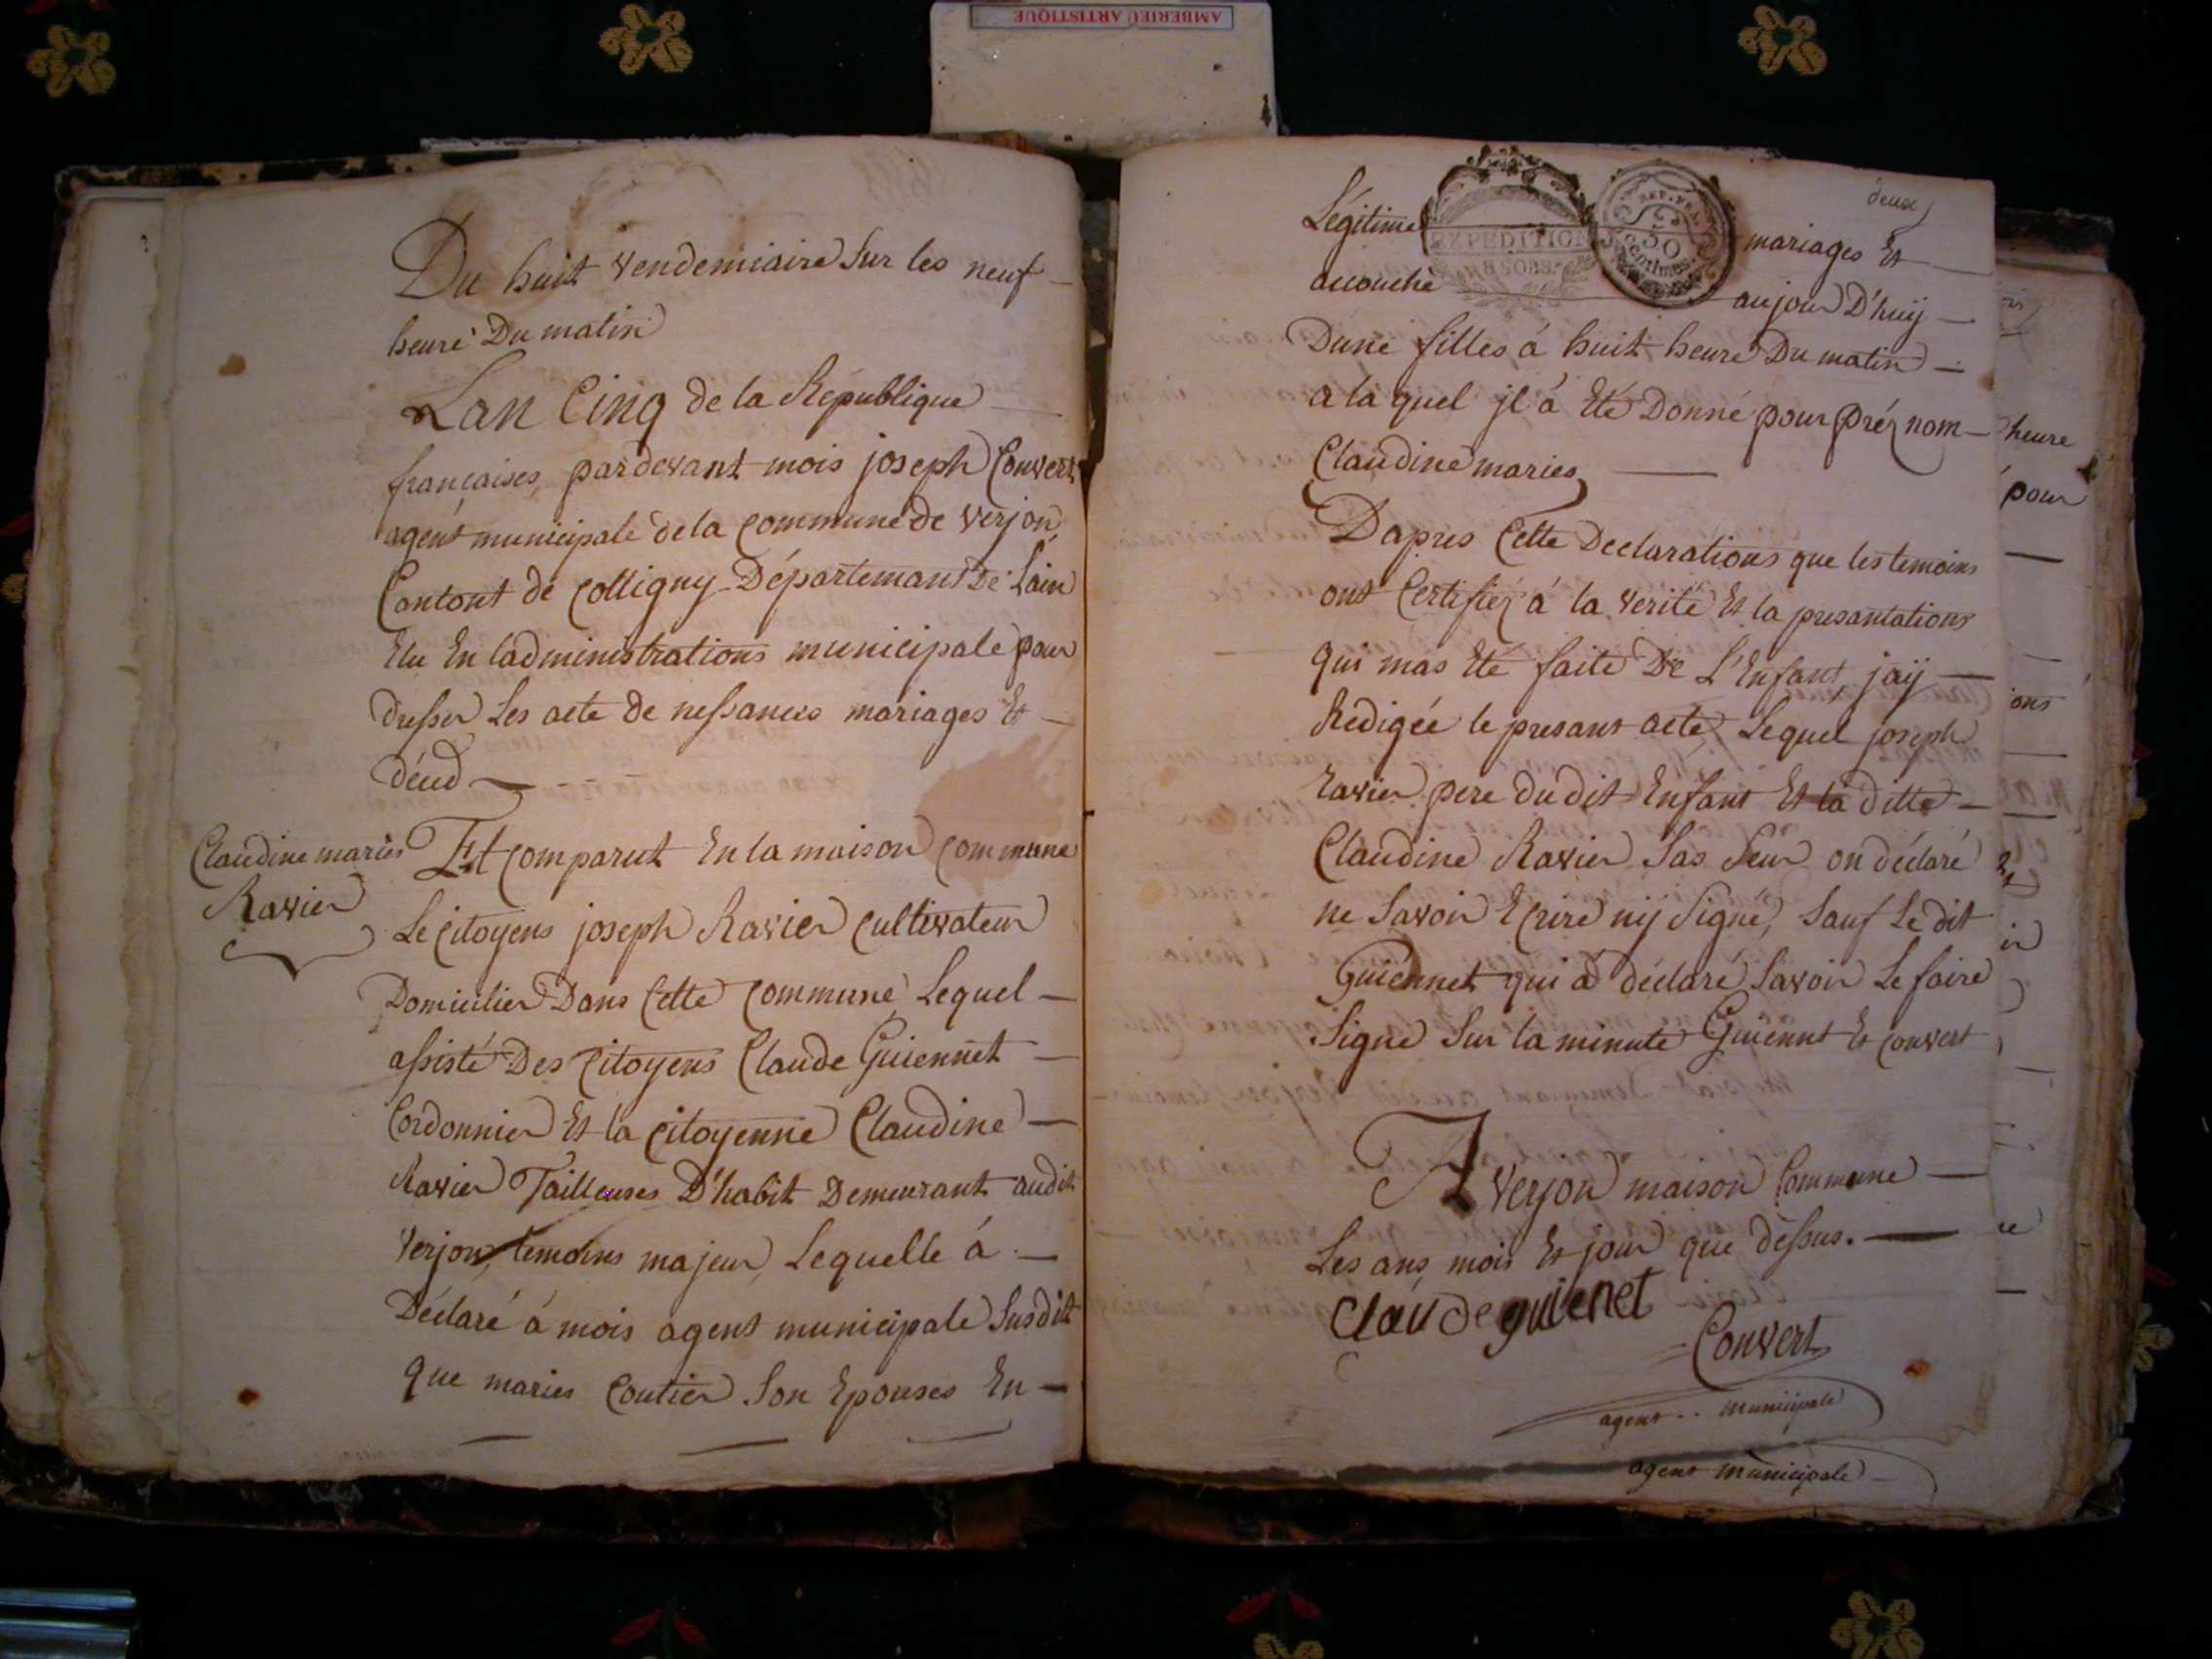 AMBERIEU ARTISTIQUE
Du huit vendemiaire sur les neuf
heure Du matin
Lan Cinq de la Republique
françaises, pardevant mois joseph Convert
agent municipale de la commune de verjon
Contont de colligny Département De Lain
Elu En ladministrations municipale pour
dresser Les acte de nessances mariages Et
déced
Claudine maries
Ravier
Et comparut En la maison commune
Le citoyens joseph Ravier cultivateur
Domicilier Dans cette commune Lequel
assisté Des citoyens Claude Guiennet
Cordonnier Et la citoyenne Claudine
Ravier Tailleuses D'habit Demeurant audit
verjon, temoins majeur, Lequelle á
Déclaré á mois agent municipale susdit
que maries Coutier son Epouses En
deux
Légitime mariages Et
EXPEDITION
REP. FRA.
50
Centimes.
accouché aujour D'huij
Dune filles á huit heure Du matin
a la quel jl á Eté Donné pour préz nom
Claudine maries
Dapres Cette Declarations que les temoins
ont Certifiéz á la verité Et la presantations
qui mas Eté faite De L'Enfant, jaij
Redigée le presant acte, Lequel joseph
Ravier pere du dit Enfant Et la ditte
Claudine Ravier sas seur on déclaré
ne savoir Ecrire nij signé, sauf Le dit
Guiennet qui a déclaré savoir Le faire
signé sur la minute Guiennt Et convert
A verjon maison Commune
Les ans mois Et jour que dessus.
Claude guienet
Convert
agent municipale
agent municipale
heure
pour
ons
ce